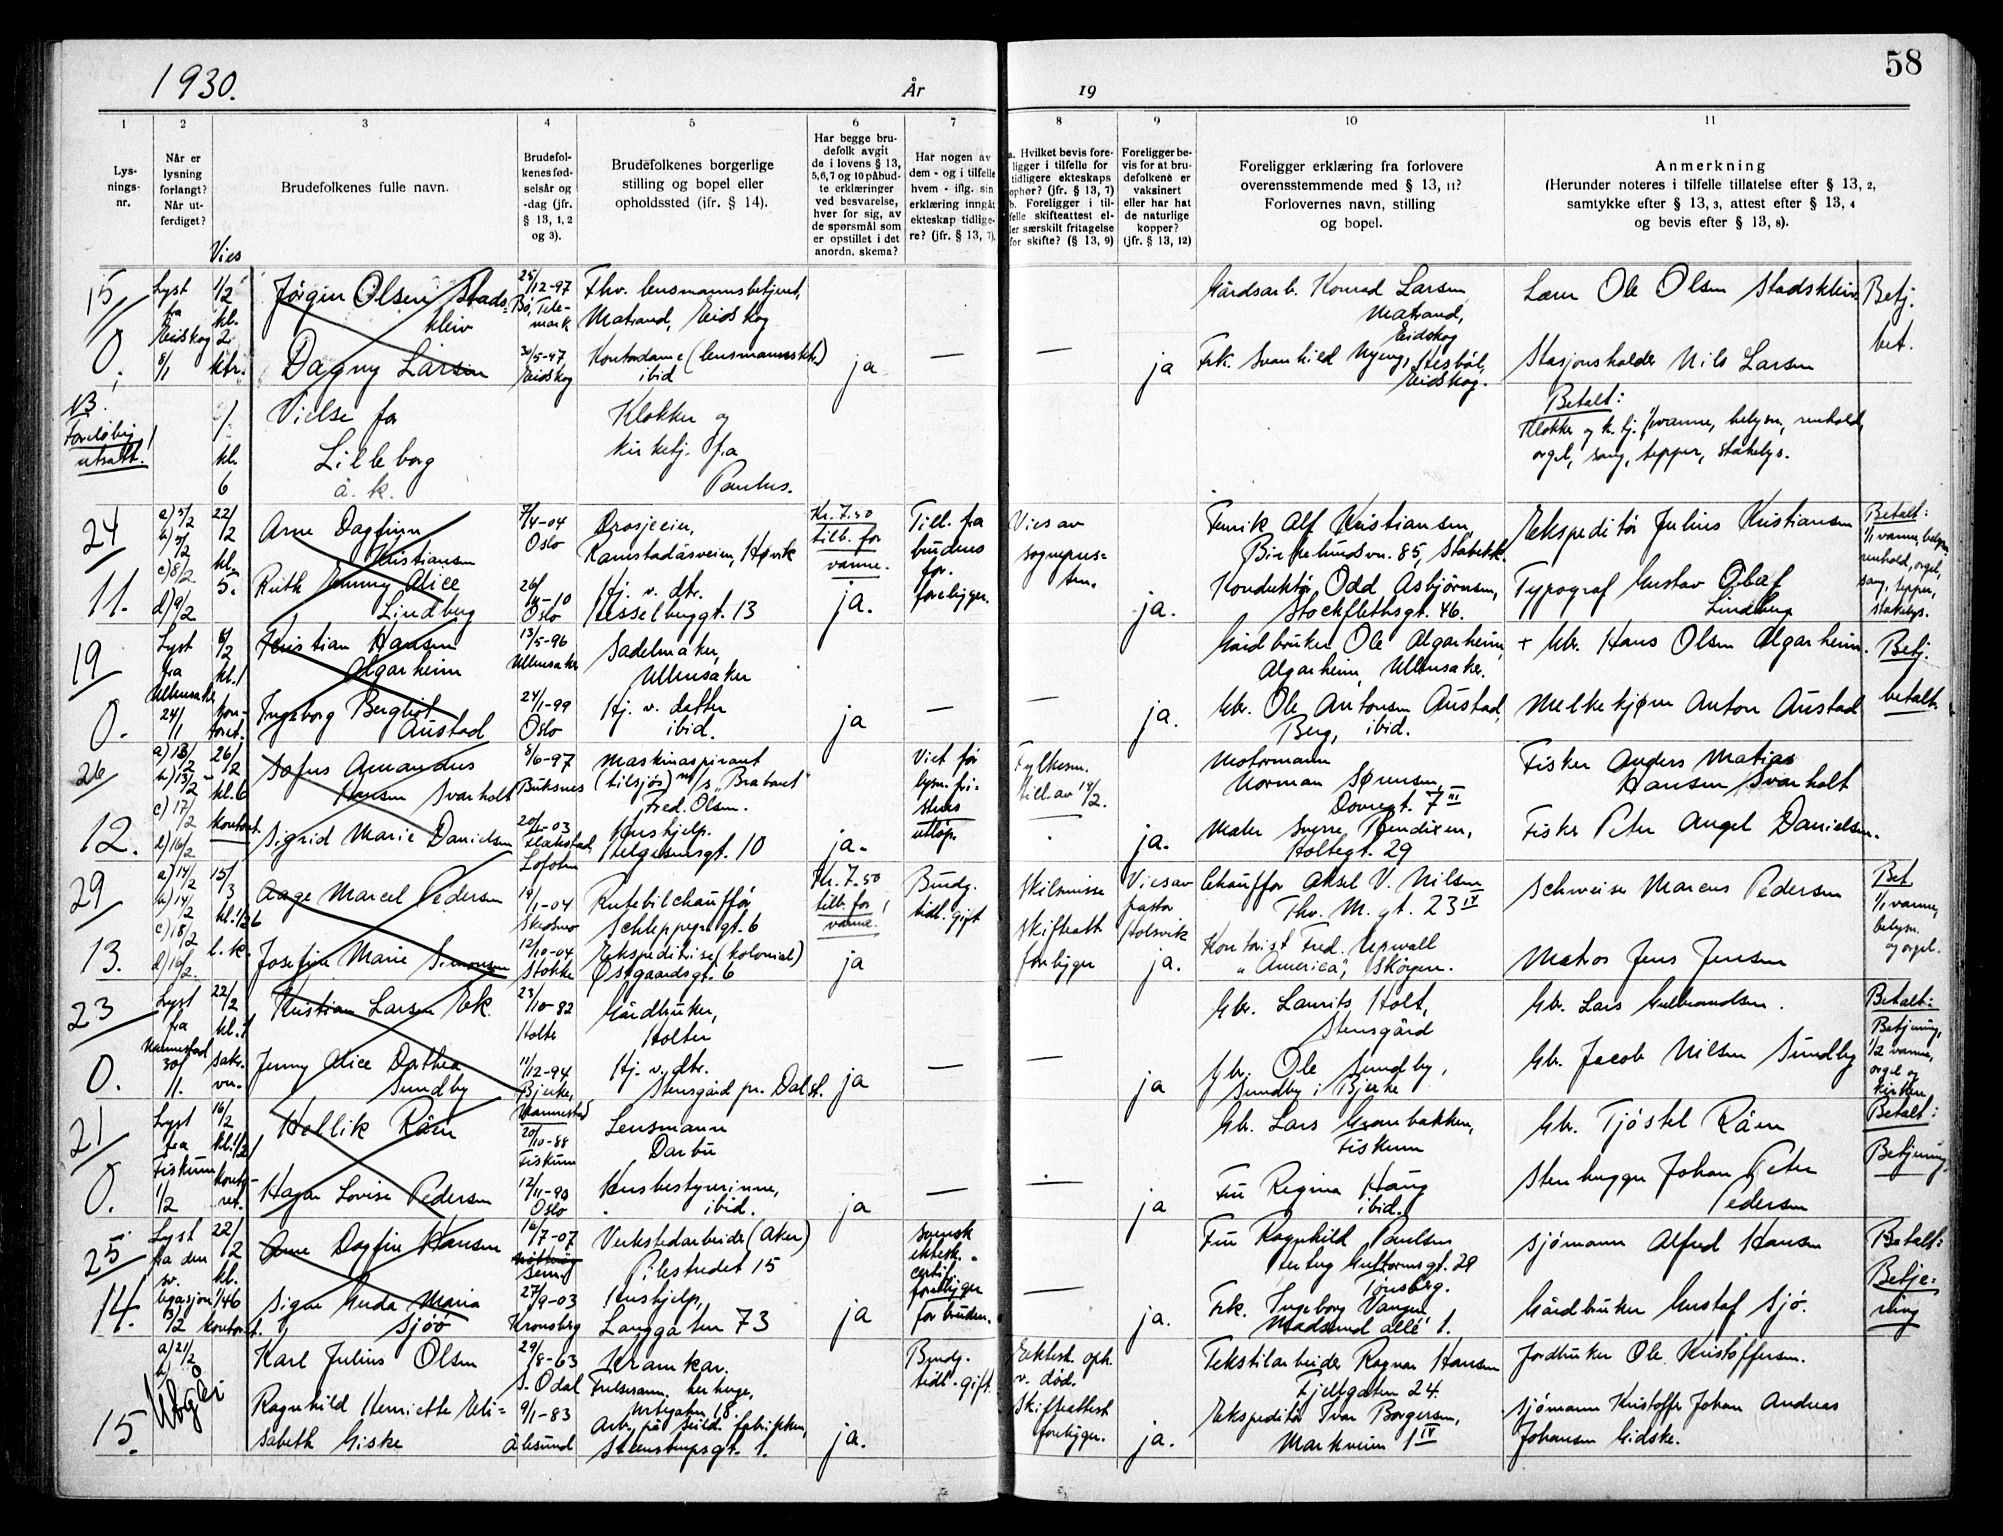 1930.
År
19
58
1
2
3
4
5
6
7
8
9
10
11
Lys-
nings-
nr.
Når er
lysning
forlangt?
Når ut-
ferdiget?
Vies
Brudefolkenes fulle navn.
Brudefol-
kenes fød-
selsår og
-dag (jfr.
§ 13, 1, 2
og 3).
Brudefolkenes borgerlige
stilling og bopel eller
opholdssted (ifr. § 14).
Har begge bru-
defolk avgit
de i lovens § 13,
5,6,7 og 10 påbud-
te erklæringer
ved besvarelse,
hver for sig, av
de spørsmål som
er opstillet i det
anordn. skema?
Har nogen av
dem - og i tilfelle
hvem - iflg. sin
erklæring inngåt
ekteskap tidlige-
re? (jfr. § 13, 7).
a. Hvilket bevis fore-
ligger i tilfelle for
tidligere ekteskaps
ophør? (jfr. § 13, 7)
b. Foreligger i til-
felle skifteattest el-
ler særskilt fritagelse
for skifte? (§ 13, 9)
Foreligger be-
vis for at bru-
defolkene er
vaksinert
eller har hat
de naturlige
kopper?
(jfr. § 13, 12)
Foreligger erklæring fra forlovere
overensstemmende med § 13, 11?
Forlovernes navn, stilling
og bopel.
Anmerkning
(Herunder noteres i tilfelle tillatelse efter § 13, 2,
samtykke efter § 13, 3, attest efter § 13, 4
og bevis efter § 13, 8).
15
0.
Lyst
fra
Eidskog
8/1
1/2
kl.
2
ktr.
Jörgen Olsen Stads-
kleiv
25/12-97
Bö, Tele-
mark
Fhv. lensmannsbetjent,
Matrand, Eidskog
Gårdsarb. Konrad Larsen
Matrand,
Eidskog
Lærer Ole Olsen Stadskleiv
Betj.
bet.
Dagny Larsen
30/5-97
Eidskog
Kontordame (lensmannsktr.)
ibid
ja
—
—
ja
Frk. Svanhild Nyeng,
Eidskog.
Stasjonsholder Nils Larsen
NB.
Foreløbig
utsatt!
kl.
6
Vielse for
Lilleborg
å. k.
Klokker og
kirketj. fra
Paulus.
Betalt:
Klokker og k. tj. 1/1 varme, belysn, renhold,
orgel, sang, tepper, stakelys.
24
11.
a) 5/2
b) 5/2
c) 8/2
d) 9/2
22/2
kl.
5.
Arne Dagfinn
Kristiansen
7/4-04
Oslo
Drosjeeier,
Ramstadåsveien, Høvik
Kr. 7.50
tilb. for
varme.
Till. fra
brudens
for.
foreligger.
Vies av
sogneprs-
ten.
Fenrik Alf Kristiansen,
Birkelundsvn. 85, Stabekk.
Ekspeditör Julius Kristiansen
Betalt:
1/1 varme, belysn,
renhold, orgel,
sang, tepper,
stakelys.
Ruth Jenny Alice
Lindberg
Oslo
Hj. v. dtr.
Hesselbergsgt. 13
ja.
ja.
Konduktör Odd Asbjörnsen,
Stockflethsgt. 46.
Typograf Gustav Olaf
Lindberg
19
0.
Lyst
fra
Ullensaker
24/1
8/2
kl. 1
kon-
toret.
Kristian Hansen
Algarheim
13/5-96
Ullensaker
Sadelmaker,
Ullensaker
Gårdbruker Ole Algarheim,
Algarheim, Ullensaker.
+ Gbr. Hans Olsen Algarheim.
Betj.
betalt.
Ingeborg Bergliot
Austad
24/1-99
Oslo
Hj. v. datter
ibid.
ja
—
—
ja.
Gbr. Ole Antonsen Austad,
Berg, ibid.
Melkekjører Anton Austad
26
12.
a) 13/2
b) 13/2
c) 17/2
d) 16/2
26/2
kl. 6
kontoret.
Sofus Amandus
Hansen Svarholt
8/6-97
Buksnes
Maskinaspirant
(tilsjøs) m/s "Brabant"
Fred. Olsen.
Viet før
lysn. fri-
stens
utløp.
Fylkesm.
till. av 18/2.
Motormann
Norman Sørensen,
Dovregt. 7 III
Fisker Anders Matias
Hansen Svarholt
Sigrid Marie Danielsen
Flakstad,
Lofoten
Hushjelp.
Helgesensgt. 10
ja.
ja.
Maler Sverre Bendixen,
Holtegt. 29
Fisker Peter Angel Danielsen.
29
13.
a) 14/2
b) 14/2
c) 18/2
d) 16/2
15/3
kl. 1/2 6
l. k.
Aage Marcel Pedersen
19/1-04
Rutebilchauffør
Schleppegrelsgt. 6
Kr. 7.50
tilb. for
varme.
Brudg.
tidl. gift
Skilsmisse
Skifteatt
foreligger
Vies av
pastor
Holsvik
Chauffør Aksel V. Nilsen
Thv. M. gt. 23 IV
Schweiser Marcus Pedersen
Bet
1/1 varme,
belysn.
og orgel.
Josefine Marie Simonsen
12/10-04
Stokke
Ekspeditrise (kolonial)
Östgaardsgt. 6
ja
ja.
Kontorist Fred. Uerwall
"America", Skøyen.
Matros Jens Jensen
23
0.
Lyst
fra
Nannestad
30/1.
22/2
kl. 1
sakr.
Kristian Larsen Eek.
23/10-82
Holte
Gårdbruker,
Holter
Gbr. Laurits Holt,
Stensgård
Gbr. Lars Gulbrandsen.
Betalt:
Betjening,
1/2 varme,
orgel og
kirken
Jenny Alice Dorthea
Sundby
11/12-94
Bjerke,
Nannestad
Hj. v. dtr.
Stensgård pr. Dal st.
ja
—
—
ja
Gbr. Ole Sundby,
Sundby i Bjerke
Gbr. Jacob Nilsen Sundby
21
0.
Lyst
fra
Fiskum
1/2
16/2
kl. 1/2 1
konto-
ret.
Hellik Råen
20/10-88
Fiskum
Lensmann
Darbu
Gbr. Lars Grønbakken,
Fiskum
Gbr. Tjöstel Råen
Betalt:
Betjening.
Hagar Lovise Pedersen
12/11-90
Oslo
Husbestyrerinne,
ibid.
ja
—
—
ja
Fru Regina Haug
ibid.
Stenhugger Johan Peter
Pedersen
25
14.
Lyst
fra den
sv.
legasjon
13/2
22/2
kl.
1/4 6
kontoret.
Arne Dagfin Hansen
16/7-07
Sem
Verkstedarbeider (Aker)
Pilestredet 15
svensk
ektesk.-
certif.
foreligger
for bruden.
Fru Ragnhild Paulsen
Hertug Guttormsgt. 29
Tønsberg.
Sjömann Alfred Hansen
Betalt:
Betje-
ning
Signe Gerda Maria
Sjöö
27/9-03
Kronsberg
Hushjelp,
Langgaten 73
ja
—
ja.
Frk. Ingeborg Vangen
Madserud allé 1.
Gårdbruker Gustaf Sjö.
15.
a) 21/2
b)
Ubgei
Karl Julius Olsen
29/8-63
S. Odal
Kramkar.
Frelsesarm. herberge,
Urtegaten 18.
Brudg.
tidl. gift.
Ektesk. oph.
v. död.
Skifteattest
foreligger.
Tekstilarbeider Ragnar Hansen
Fjellgaten 24.
Jordbruker Ole Kristoffersen.
Ragnhild Henriette Eli-
sabeth Giske
9/1-83
Ålesund
Arb. på Seild. fabrikken,
Steenstrupsgt. 1.
ja.
ja.
Ekspeditör Ivar Borgersen,
Markveien 1 IV
Sjömann Kristoffer Johan Andreas
Johansen Gidske.